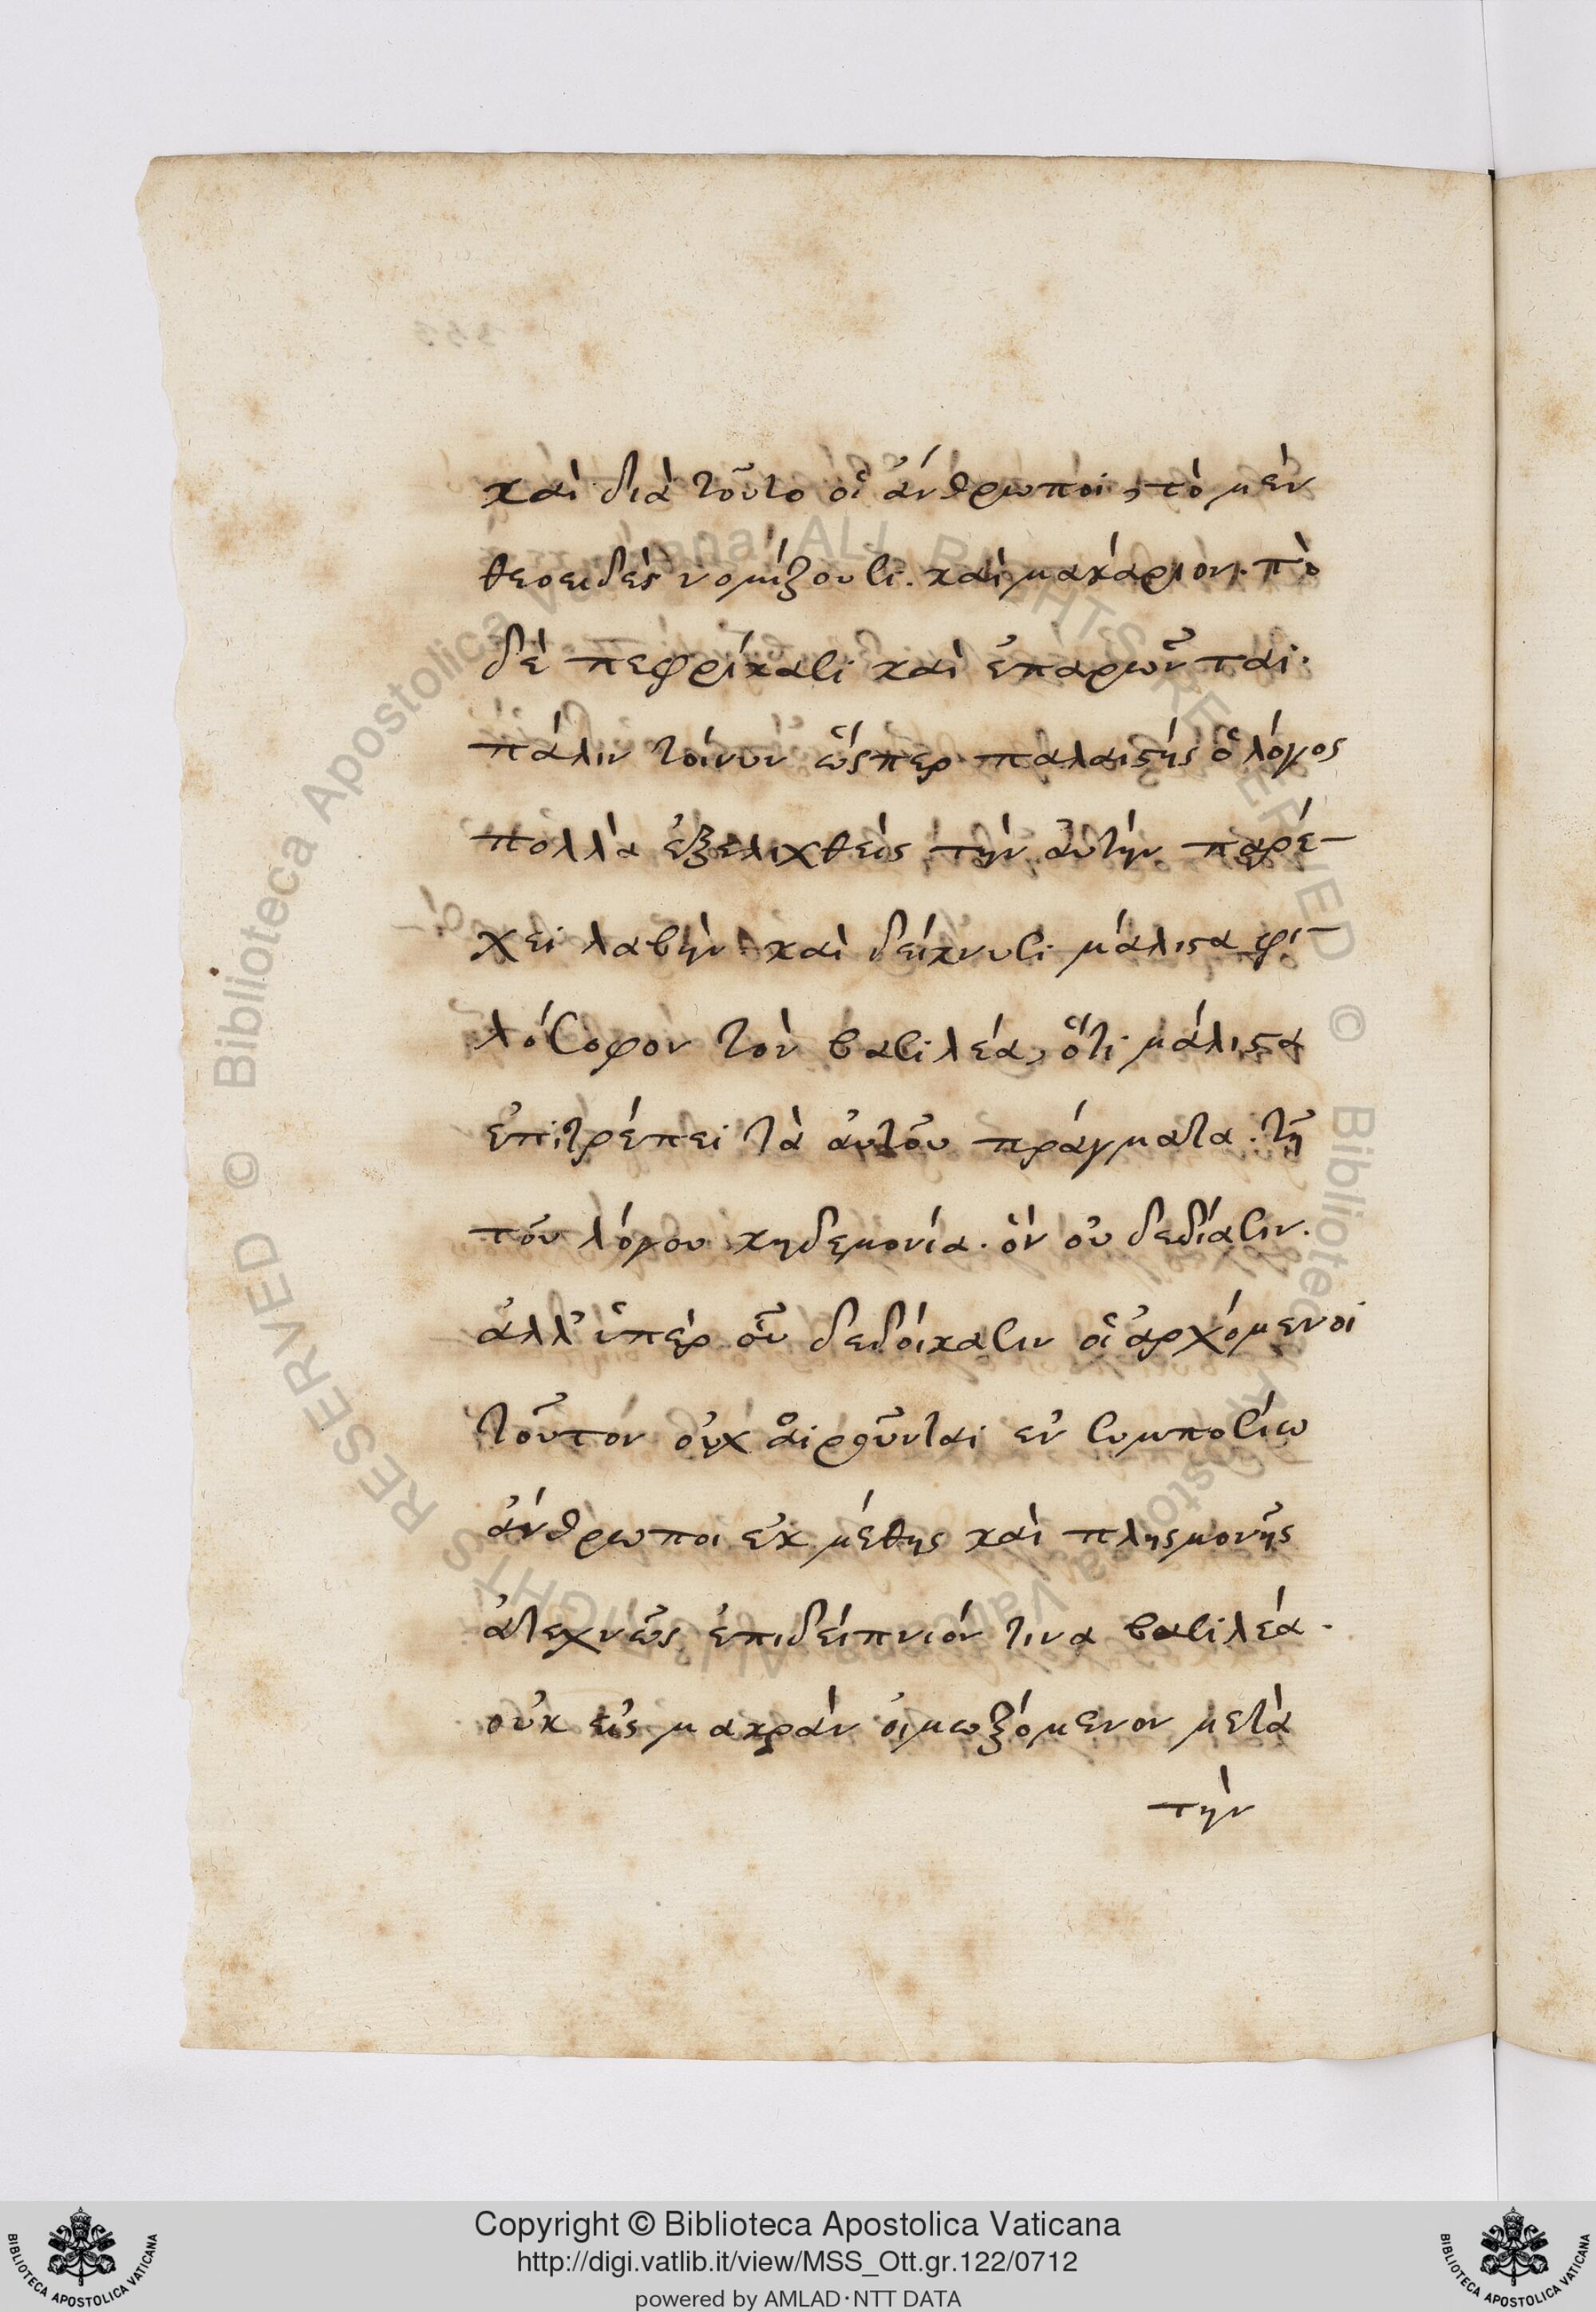 καὶ διὰ τοῦτο οἱ ἄνθρωποι, τὸ μὲν
θεοειδὲς νομίζουσι. καὶ μακάριον. τὸ
δὲ πεφρίκασι καὶ ἐπαρῶνται.
πάλιν τοίνυν ὥςπερ παλαιϛὴς ὁ λόγος
πολλὰ ἐξελιχθεὶς τὴν ἀυτὴν παρέ-
χει λαβὴν. καὶ δείκνυσι μάλιϛα φι-
λόσοφον τὸν βασιλέα, ὅτι μάλιϛα
ἐπιτρέπει τὰ ἀυτοῦ πράγματα. τῆ
τοῦ λόγου κηδεμονία. ὃν οὐ δεδίασιν.
ἀλλ' ὑπὲρ οὗ δεδοίκασιν οἱ ἀρχόμενοι
τοῦτον οὐχ ἁιροῦνται ἐν συμποσίω
ἄνθρωποι ἐκ μέθης καὶ πλησμονῆς
ἀτεχνῶς ἐπιδείπνιόν τινα βασιλέα.
οὐκ εἰς μακρὰν ὀιμωξόμενον μετὰ
τὴν
Copyright © Biblioteca Apostolica Vaticana
http://digi.vatlib.it/view/MSS_Ott.gr.122/0712
powered by AMLAD·NTT DATA